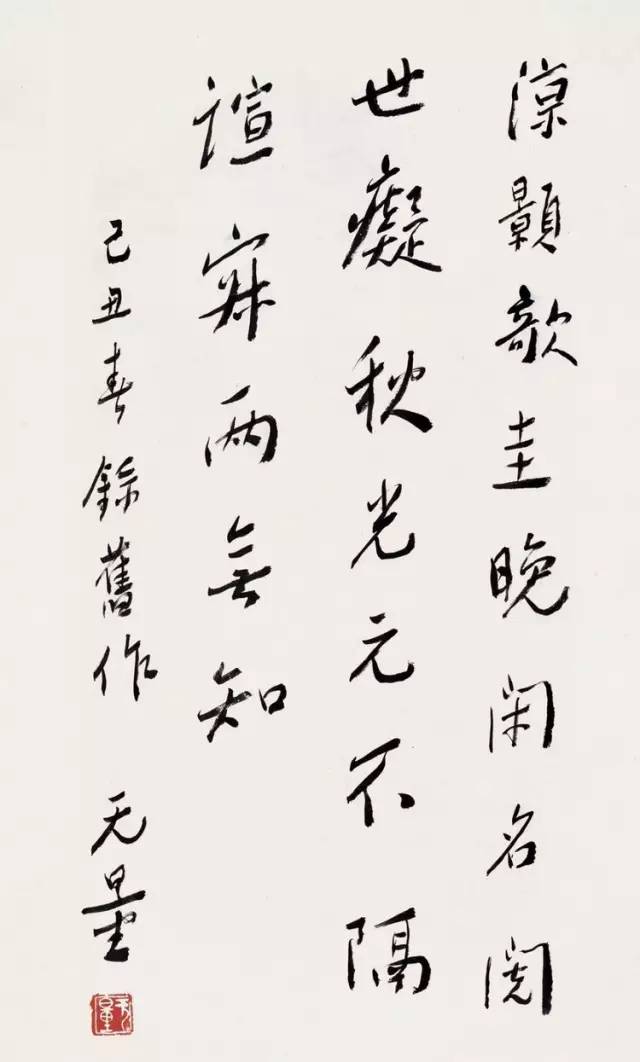 涼顥歆圭晚閑名閱
世癡秋光元不隔
諠寂兩無知
己丑春錄舊作 无量
无量